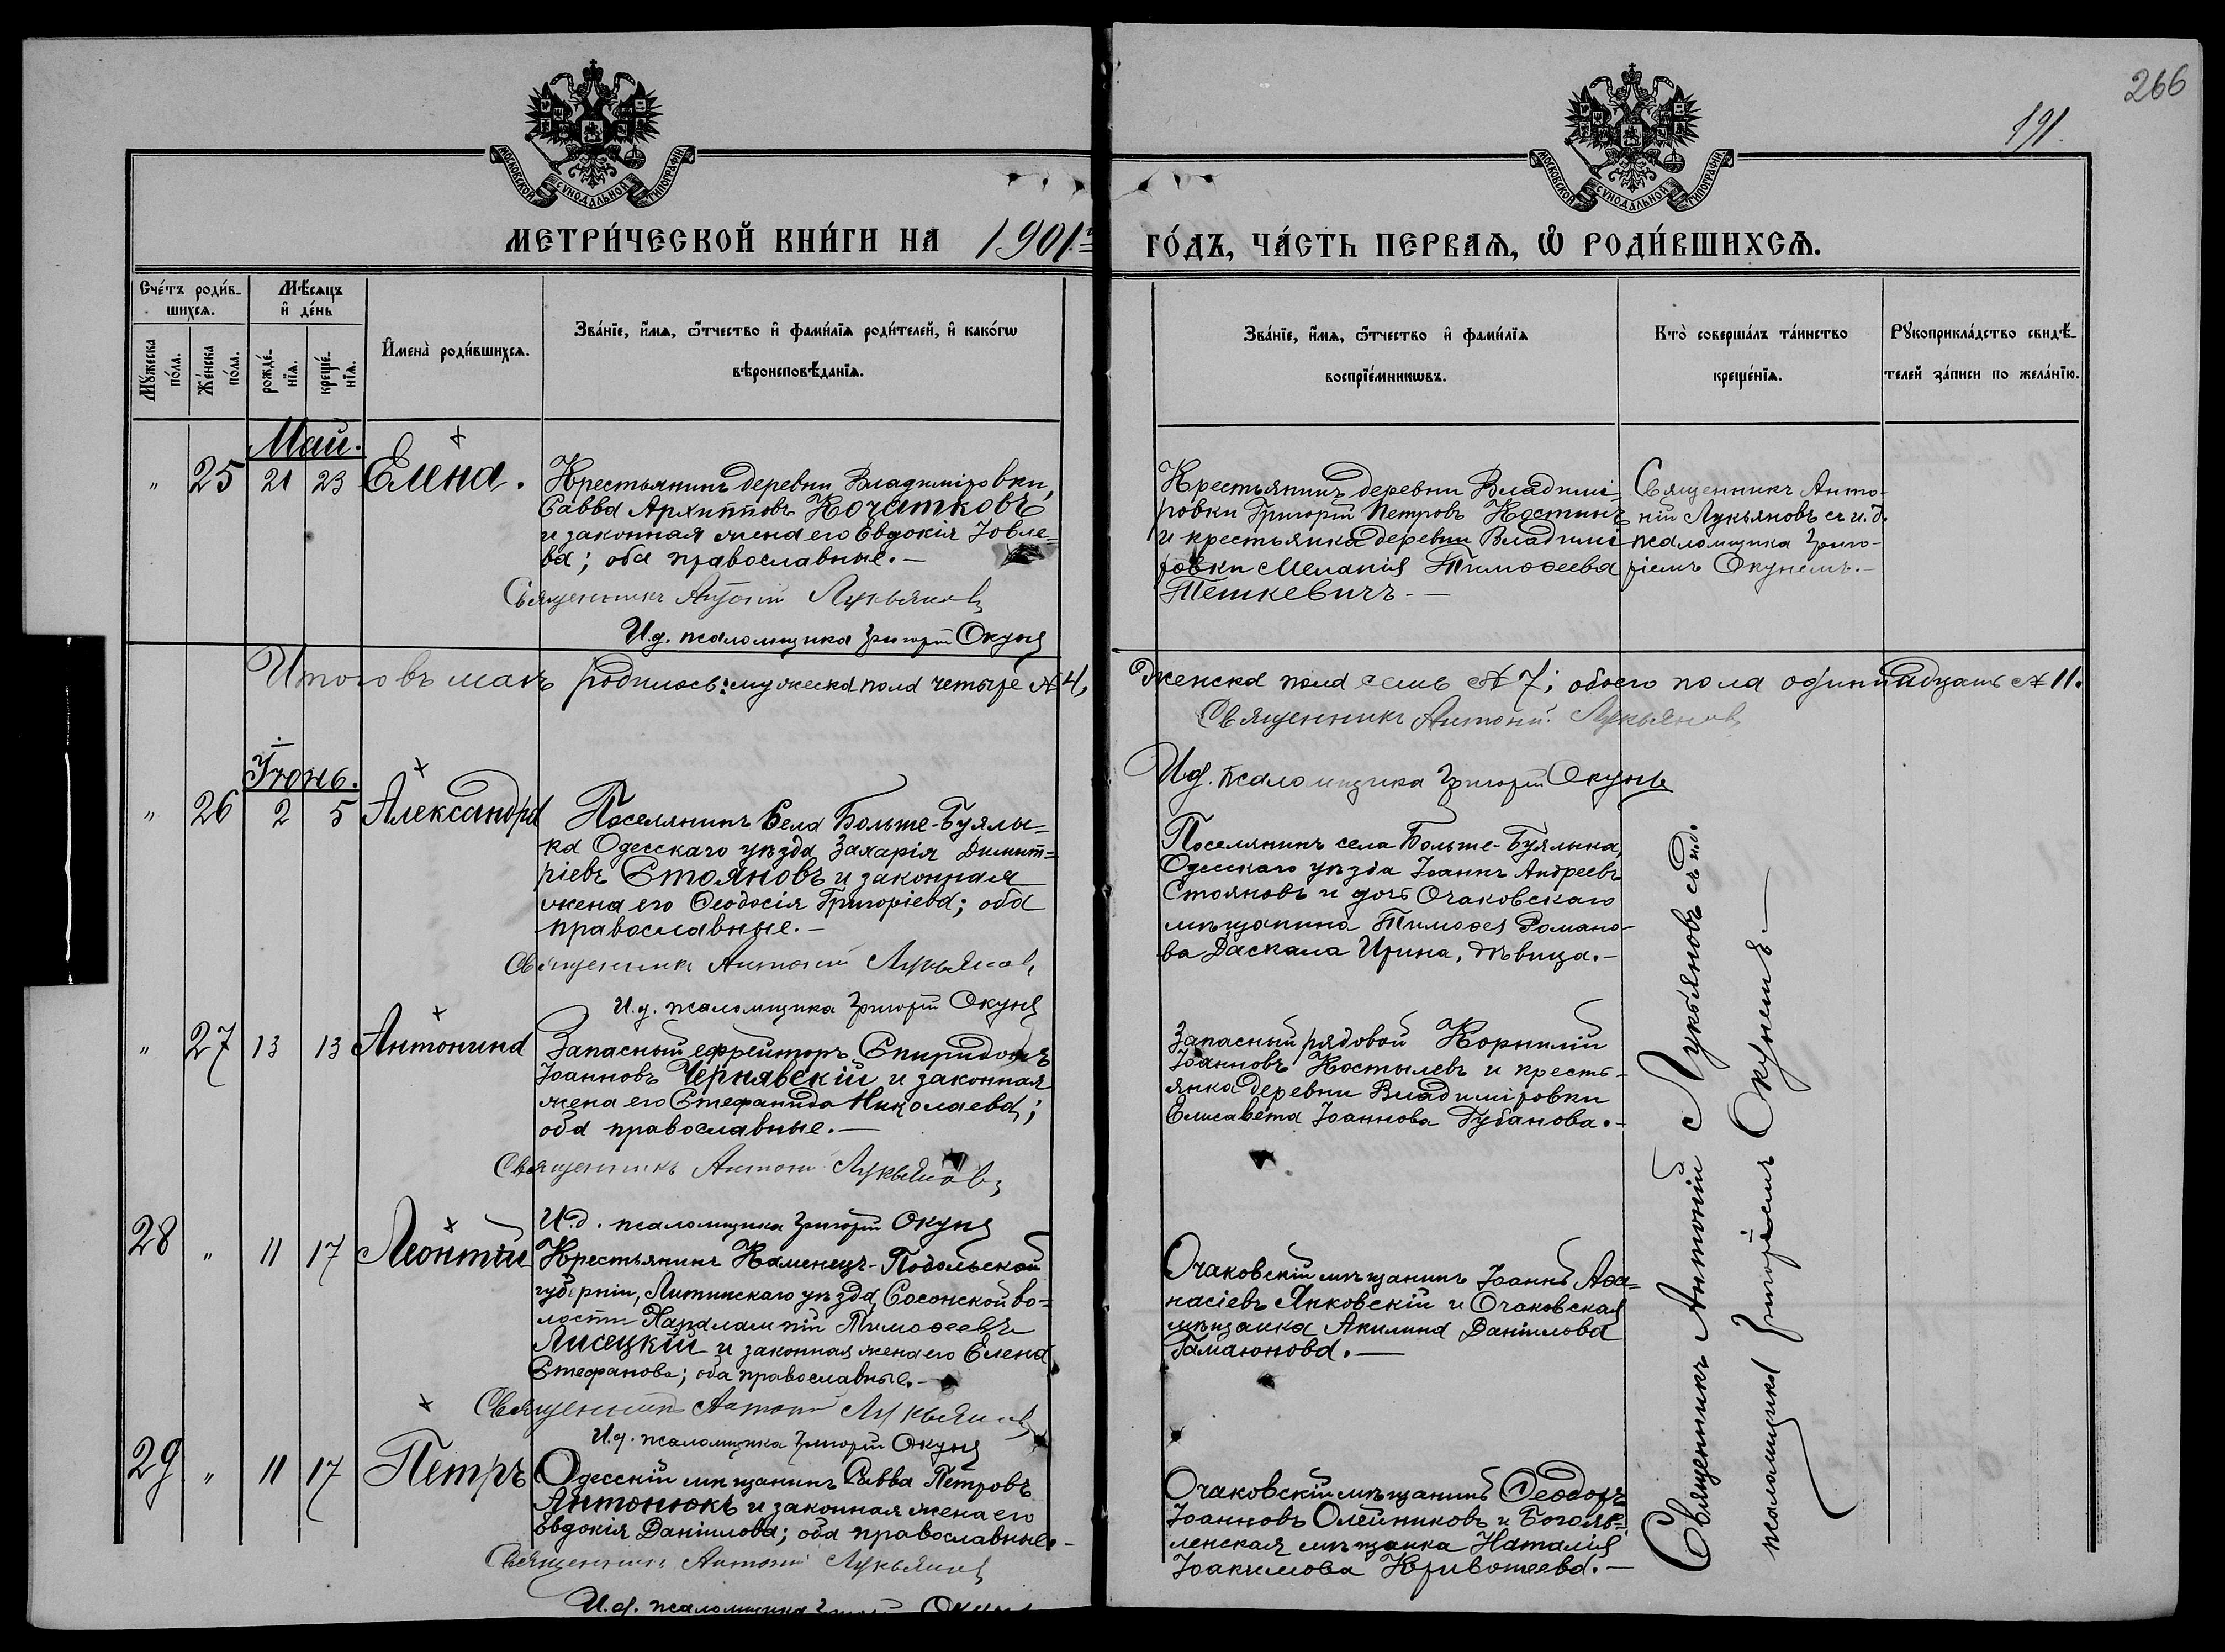 266
191.
МОСКОВСКОЙ СУНОДАЛЬНОЙ ТИПОГРАФІИ
МОСКОВСКОЙ СУНОДАЛЬНОЙ ТИПОГРАФІИ
МЕТРИ́ЧЕСКОЙ КНИ́ГИ НА 1901й
ГО́ДЪ, ЧА́СТЬ ПЕРВАѦ, Ѡ РОДИ́ВШИХСѦ.
Сче́тъ роди́в-
шихсѧ.
Мꙋ́жеска
по́ла.
Же́нска
по́ла.
Мѣ́сѧцъ
и де́нь
рожде́-
нїѧ.
креще́-
нїѧ.
Имена̀ роди́вшихсѧ.
Зва́нїе, и́мѧ, ѻ҆́тчество и фами́лїѧ роди́телей, и како́гѡ
вѣроисповѣ́данїѧ.
Зва́нїе, и́мѧ, ѻ҆́тчество и фами́лїѧ
воспрїе́мникѡвъ.
Кто̀ соверша́лъ та́инство
креще́нїѧ.
Рꙋкоприкла́дство свидѣ́-
телей за́писи по жела́нїю.
Май.
" 25 21 23 Елена.
Крестьянинъ деревни Владиміровки,
Савва Архипповъ Кочатковъ
и законная жена его Евдокія Іовле-
ва; оба православные.-
Священникъ Антоній Лукьяновъ
И.д. псаломщика Григорій Окунь
Крестьянинъ деревни Владимі-
ровки Григорій Петровъ Костинъ
и крестьянка деревни Владимі-
ровки Меланія Тимоѳеева
Тешкевичъ.-
Священникъ Анто-
ній Лукьяновъ съ и.д.
псаломщика Григо-
ріемъ Окунемъ.-
Итого въ маѣ родилось: мужеска пола четыре № 4, женска пола семь № 7; обоего пола одиннадцать № 11.
Священникъ Антоній Лукьяновъ
И.д. псаломщика Григорій Окунь
Іюнь.
" 26 2 5 Александра
Поселянинъ села Больше-Буялы-
ка Одесскаго уѣзда Захарія Димит-
ріевъ Стояновъ и законная
жена его Ѳеодосія Григоріева; оба
православные.-
Священникъ Антоній Лукьяновъ
И.д. псаломщика Григорій Окунь
Поселянинъ села Больше-Буялыка,
Одесскаго уѣзда Іоаннъ Андреевъ
Стояновъ и дочь Очаковскаго
мѣщанина Тимоѳея Романо-
ва Даскала Ирина, дѣвица.-
" 27 13 13 Антонина
Запасный ефрейторъ Спиридонъ
Іоанновъ Чернявскій и законная
жена его Стефанида Николаева;
оба православные.-
Священникъ Антоній Лукьяновъ
И.д. псаломщика Григорій Окунь
Запасный рядовой Корнилій
Іоанновъ Костылевъ и кресть-
янка деревни Владиміровки
Елисавета Іоаннова Губанова.-
28 " 11 17 Леонтій
Крестьянинъ Каменецъ-Подольской
губерніи, Литинскаго уѣзда, Сосонской во-
лости Харалампій Тимоѳеевъ
Лисецкій и законная жена его Елена
Стефанова; оба православные.-
Священникъ Антоній Лукьяновъ
И.д. псаломщика Григорій Окунь
Очаковскій мѣщанинъ Іоаннъ Аѳа-
насіевъ Янковскій и Очаковская
мѣщанка Акилина Даніилова
Гамаюнова.-
29 " 11 17 Петръ
Одесскій мѣщанинъ Савва Петровъ
Антонюкъ и законная жена его
Евдокія Даніилова; оба православные.-
Священникъ Антоній Лукьяновъ
И.д. псаломщика Григорій Окунь
Очаковскій мѣщанинъ Ѳеодоръ
Іоанновъ Олейниковъ и Богояв-
ленская мѣщанка Наталія
Іоакимова Кривошеева.-
Священникъ Антоній Лукьяновъ съ и.д.
псаломщика Григоріемъ Окунемъ.-